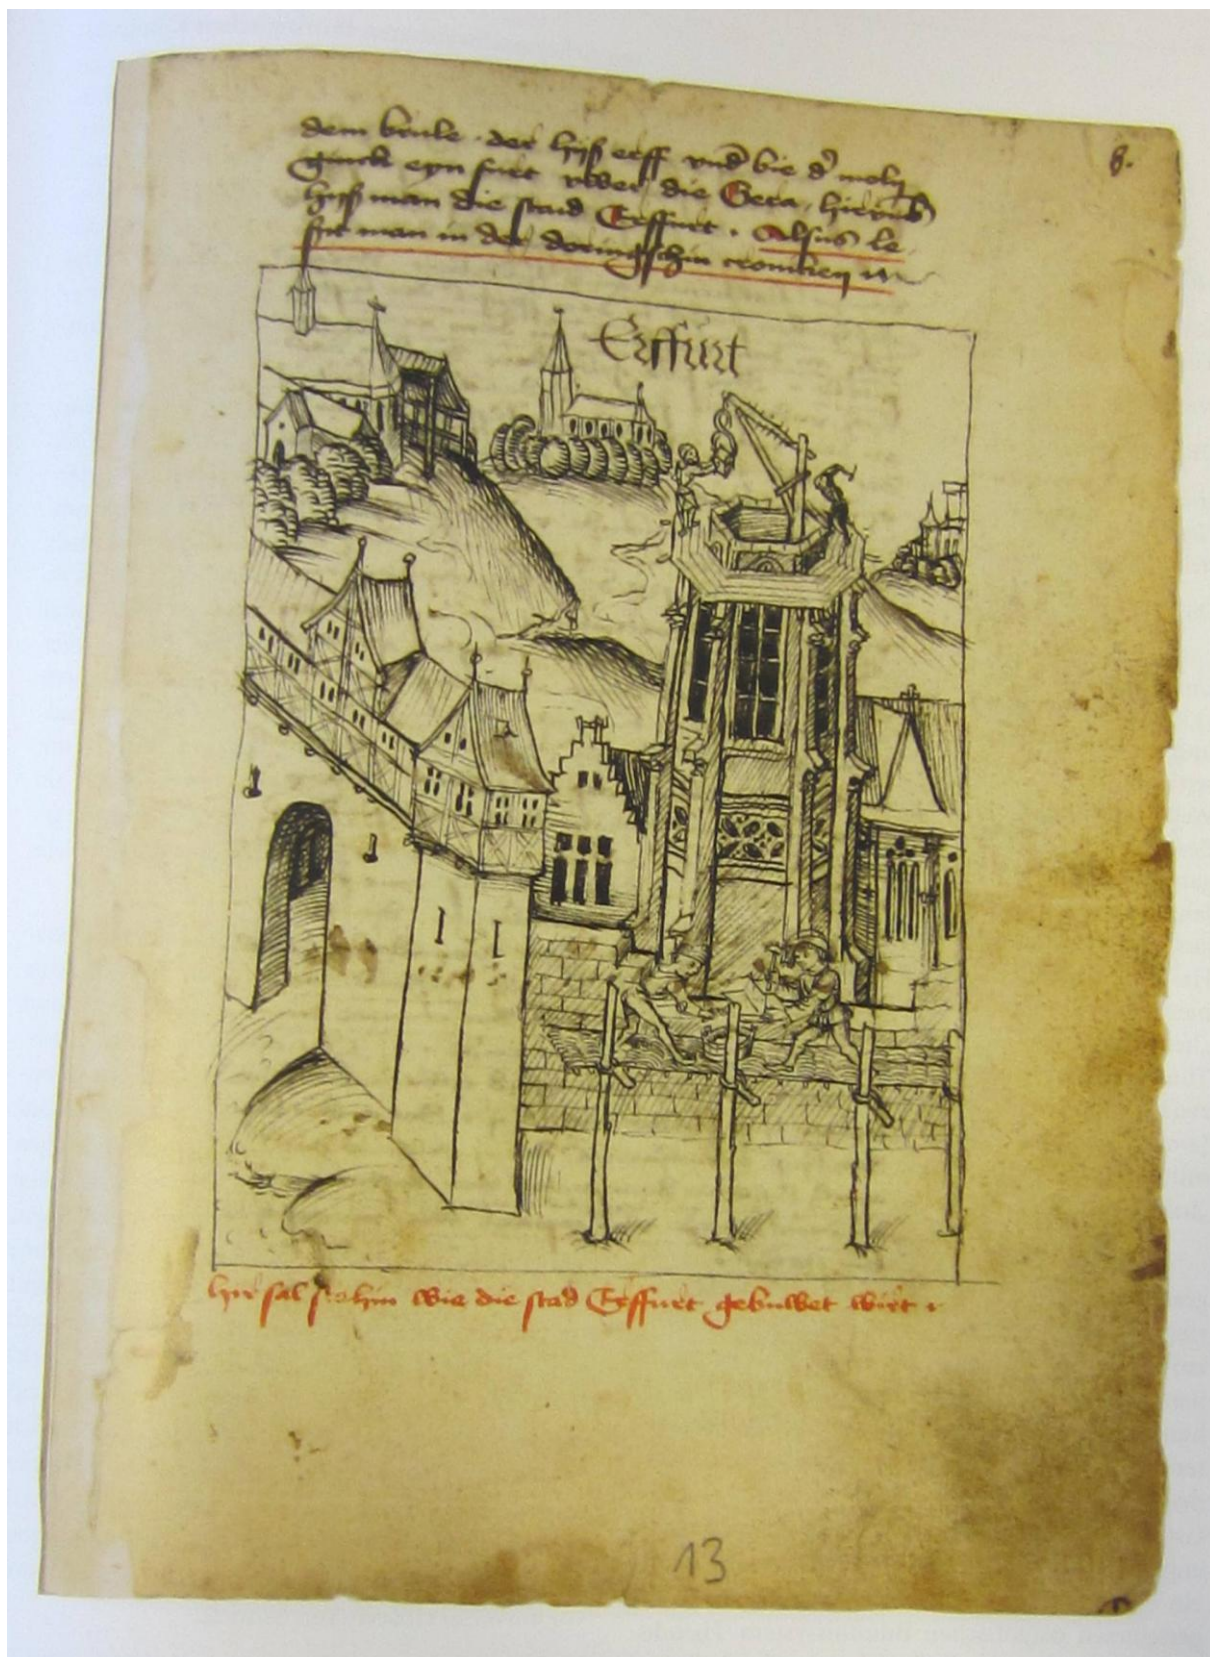 dem brule · der hiß erff vnd bie d' moln
8.
ginck eyn furt vber die Gera, hievmb
hiß man die stad Erffurt · Alsus le
ßit man in der doringschin croniken
Erffurt
hir sal stehin wie die stad Erffurt gebuwet wirt ·
13